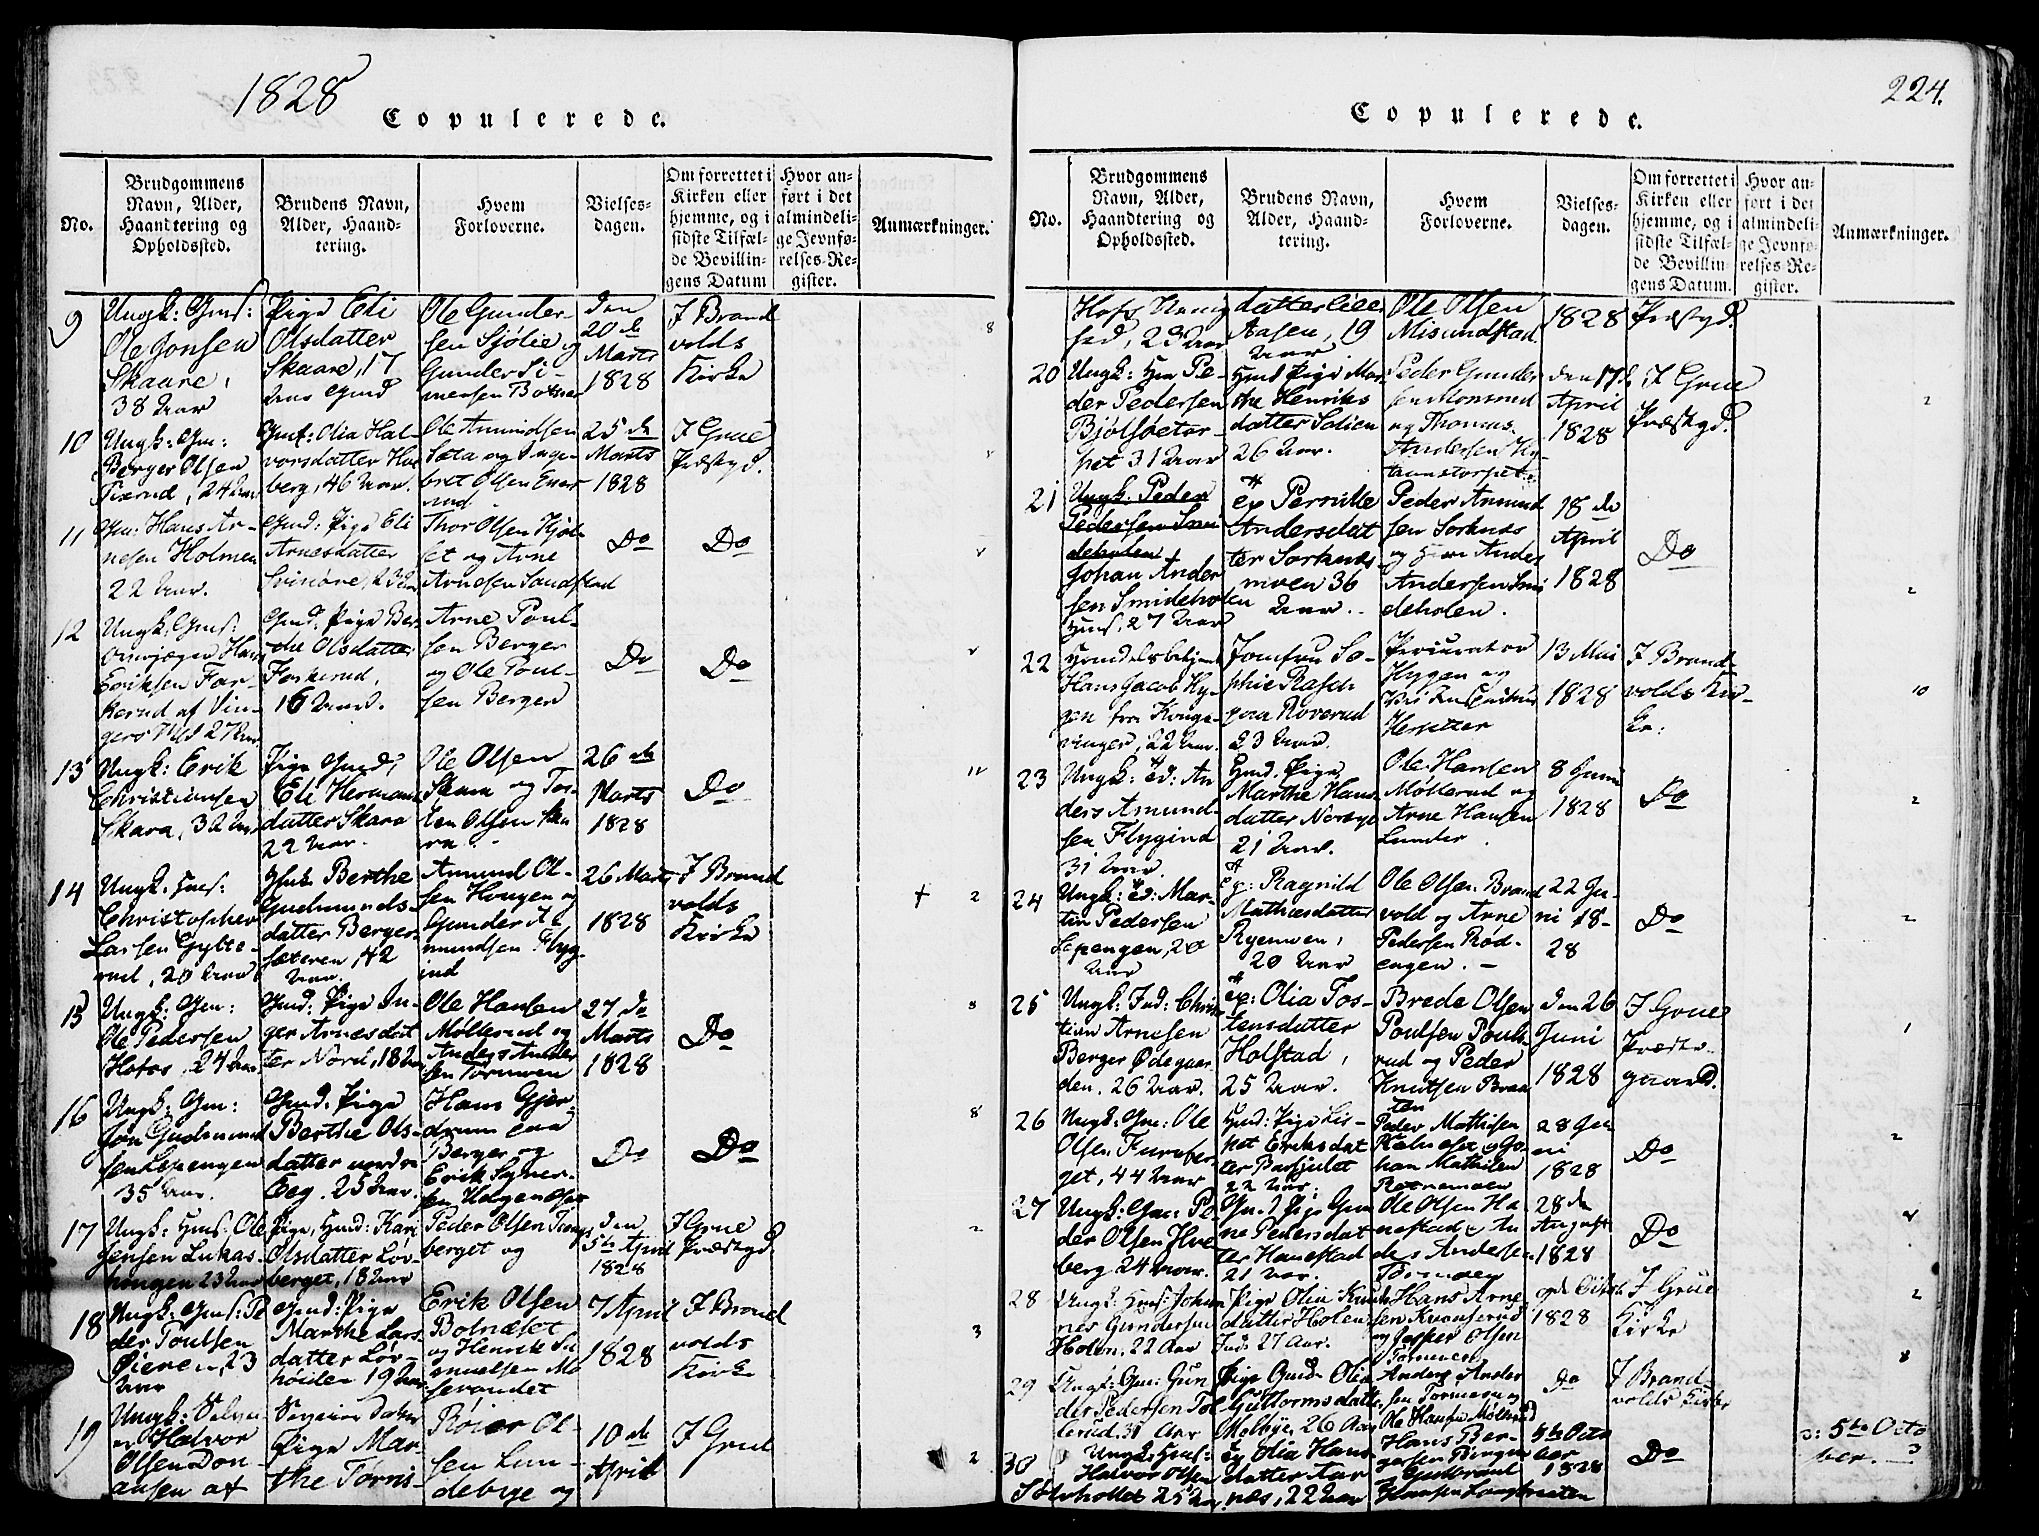 1828
Copulerede.
No.
Brudgommens
Navn, Alder,
Haandtering og
Opholdssted.
Brudens Navn,
Alder, Haand-
tering.
Hvem
Forloverne.
Vielses-
dagen.
Om forrettet i
Kirken eller
hjemme, og i
sidste Tilfæl-
de Bevillin-
gens Datum
Hvor an-
ført i det
almindeli-
ge Jevnfø-
relses-Re-
gister.
Anmærkninger.
9
Ungk: Gms:
Ole Jonsen
Skaare,
38 Aar
Pige Eli
Olsdatter
Skaare, 17
Aar Gmd
Ole Gunder
sen Sjölie og
Gunder Si-
mensen Botner
Den
20 de
Marts
1828
I Brand
volds
Kirke
8
10
Ungk: Gm:
Berger Olsen
24 Aar
Olia Hal-
vorsdatter
berg, 46 Aar.
Ole Amundsen
Sæta og Inge-
bret Olsen
rud
25 de
Marts
1828
I Grue
Præstgd.
11
Gm: Hans Ar-
nesen Holmen
22 Aar.
Gmd: Pige Eli
Arnesdatter
23 Aar
Thor Olsen Kjöl-
set og Arne
Arnesen Sandstad
Do
Do
12
Ungk: Gms:
Hans
Eriksen Far-
kerud af Vin-
gers 27 Aar
Gmd: Pige Ber-
the Olsdatter
Forkerud,
16 Aar.
Arne Poul-
sen Berger
og Ole Poul-
sen Berger
Do
Do
13
Ungk: Erik
Christiansen
Skara, 32 Aar
Pige Gmd:
Eli Hermans
datter Skara
22 Aar.
Ole Olsen
Skara og Tos-
ten Olsen Ska
ra.
26 de
Marts
1828
Do
11
14
Ungk. Hms:
Christopher
Larsen Gytte-
rud, 20 Aar
Berthe
Gudmunds-
datter Berger-
sæteren, 42
Aar.
Amund Ol-
sen Hongen og
Gunder A-
mundsen Flyg-
ind
26 Marts
1828
I Brand
volds
Kirke
+
2
15
Ungk: Gm:
Ole Pedersen
Hofos, 24 Aar
Gmd: Pige In-
ger Arnesdat
ter Nord, 18 Aar
Ole Hansen
Möllerud og
Anders Ander
sen Tormoen
27 de
Marts
1828
Do
8
16
Ungk: Gm:
Jon Gudmund
sen Lepengen
35 Aar.
Gmd: Pige
Berthe Ols-
datter nordre
Eeg. 25 Aar.
Hans Gjer-
drum paa
Berger og
Erik Syver-
sen
Do
Do
8
17
Ungk: Hms: Ole
Jensen Lukas-
hougen 23 Aar
Pige, Hmd: Kari
Olsdatter Löv-
berget, 18 Aar
Peder Olsen
berget og
Den
5te April
1828
I Grue
Præstgd.
2
18
Ungk: Gms: Pe
der Poulsen
Öieren, 23
Aar
Gmd: Pige
Marthe Lars
datter Lör-
19 Aar
Erik Olsen
Botnæset
og Henrik Si
muelsen Mo
7 April
1828
I Brand
volds
Kirke
3
19
Ungk: Selvei-
er Halvor
Olsen Don-
ansen af
Selveier Datter
Pige Mar-
the Törris-
Röier Ol-
sen Lun-
debye og
10 de
April
I Grue
2
224.
Copulerede.
No.
Brudgommens
Navn, Alder,
Haandtering og
Opholdssted.
Brudens Navn,
Alder, Haand-
tering.
Hvem
Forloverne.
Vielses-
dagen.
Om forrettet i
Kirken eller
hjemme, og i
sidste Tilfæl-
de Bevillin-
gens Datum.
Hvor an-
ført i det
almindeli-
ge Jevnfø-
relses-Re-
gister.
Anmærkninger.
Hofs
23 Aar
datter lille
Aasen, 19
Aar
Ole Olsen
Misundstad
1828
Præstgd.
20
Ungk: Hm Pe-
der Pedersen
Bjölsöetor-
pet 31 Aar
Hmd Pige Mar
the Henriks
datter Solien
26 Aar.
Peder Gunder
sen Monsrud
og Thomas
Andersen
den 17 de
April
1828
I Grue
Præstgd.
2
21
Ungk: Peder
Pedersen Smi
deholen
Johan Ander
sen Smideholen
Hms, 27 Aar
Pernille
Andersdat
ter Sorknes
moen 36
Aar.
Peder Amund
sen Sorknes
og Anders
Andersen Smi
deholen.
18 de
April
1828
Do
2
22
Handelsbetjent
Hans Jacob Hy-
gen fra Kongs-
vinger, 22 Aar.
Jomfru So-
phie Rasch
paa Roverud
23 Aar.
Procurator
Hygen og
13 Mai
1828
I Brand-
volds Kir-
ke:
10
23
Ungk: Ed: An
ders Amund-
sen Flygind
31 Aar.
Hmd. Pige
Marthe Hans
datter Noräge
21 Aar.
Ole Hansen
Möllerud og
Arne Hansen
Lunder.
8 Juni
1828
Do
2
24
Ungk: Ed: Mar-
tin Pedersen
Lepengen, 20
Aar
Ragnild
Mathiesdatter
Ryenmoen,
20 Aar
Ole Olsen Brand
vold og Arne
Pedersen Röd-
engen. –
22 Ju-
ni 18-
28
Do
2
25
Ungk: Ind: Chris
tian Arnesen
Berger Ödegaar
den. 26 Aar.
Olia Tos-
tensdatter
Holstad,
25 Aar.
Brede Olsen
Poulsen Pouls-
rud og Peder
Knudsen Braa
ten
Den 26
Juni
1828
I Grue
Præste-
gaard.
1
26
Ungk: Gm: Ole
Olsen Furuber-
get, 44 Aar
Hmd: Pige Lis-
pet Eriksdat
ter Barfjulet
22 Aar.
Peder Mathisen
og Jo-
han Mathisen
28 Ju
ni
1828
Do
2
27
Ungk: Gm: Pe
der Olsen Hve
berg 24 Aar.
Gmd Pige Gun
ne Pedersdat
ter Hanestad
21 Aar.
Ole Olsen Ha
nestad og An
ders Andersen
Tormoen
28 de
August
1828
Do
28
Ungk: Hms: Johan
nes Gundersen
Holen, 22 Aar
Pige Olia Knuds
datter Holen
Ind: 27 Aar.
Hans Arne
sen Kvanserud
og Jesper Olsen
1828
I Grue
Kirke
2
29
Ungk: Gm: Gun
der Pedersen Tol
lerud. 31 Aar
Pige Gmd: Olia
Guttormsdatter
Molbye, 26 Aar
Anders Ander
sen Tormoen og
Ole Hansen Möllerud
Do
I Brand-
volds Kirke
8
30
Ungk: Hms:
Halvor Olsen
Sölvhollet 25 Aar
Olia Hans
datter Aar
næs, 22 Aar
Hans Ber-
gersen Bergen
Gulbrand
Hansen Langbraaten
5te Octo
ber
1828
Do
5te Octo
ber.